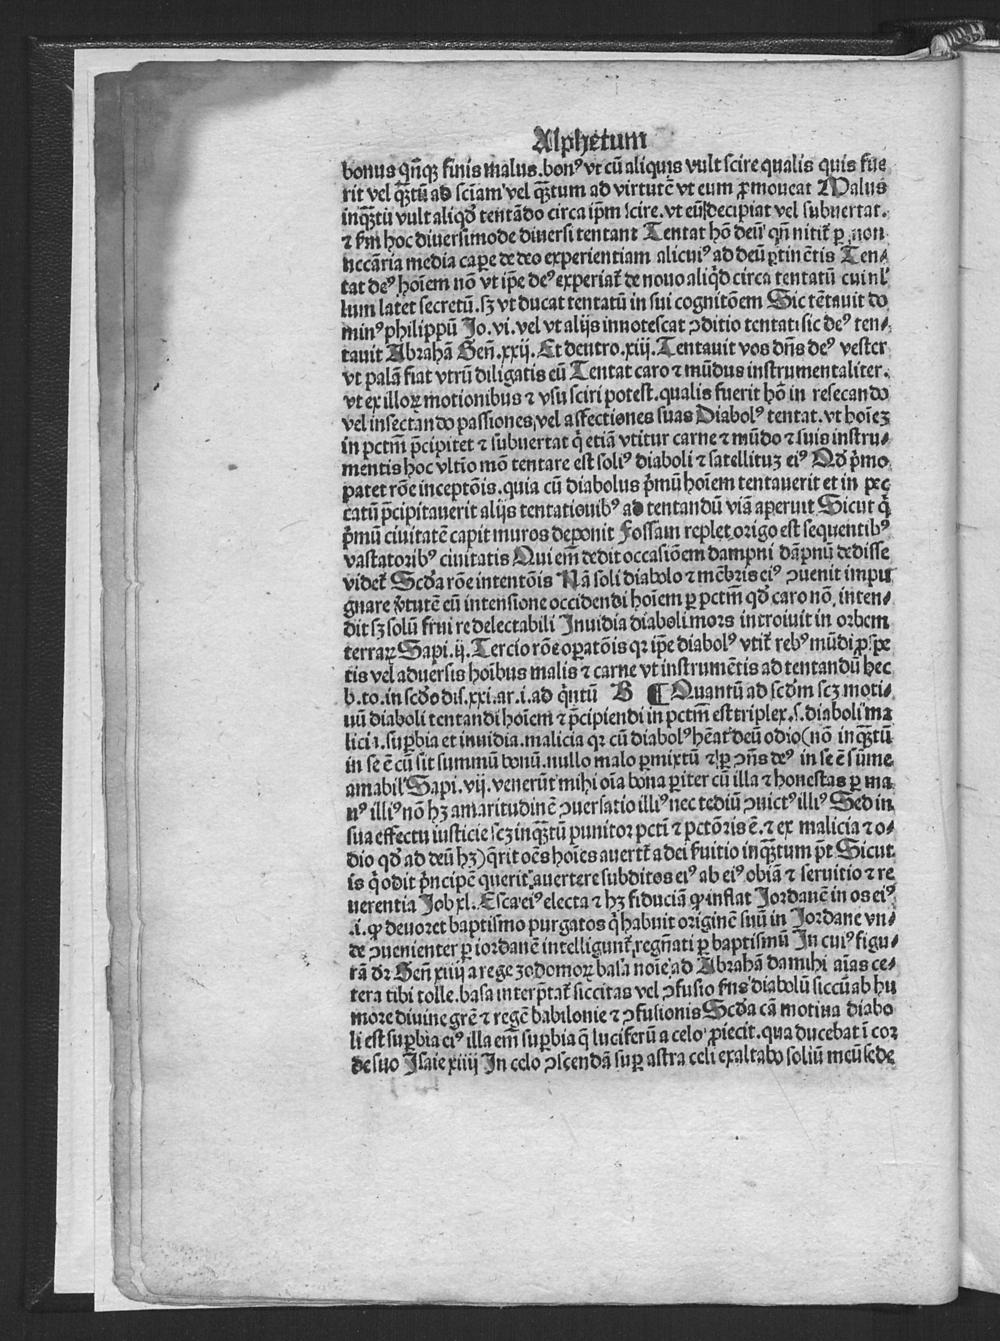 Alphetum
bonus qñqȝ finis malus. bonꝰ vt cũ aliquis vult scire qualis quis fue
rit vel q̃ȝtũ ad sciam̃ vel q̃ȝtum ad virtutẽ vt eum ꝓmoueat Malus
inq̃ȝtũ vult aliqd̛ tentãdo circa ip̃m scire. vt eũ decipiat vel subuertat.
⁊ fm̃ hoc diuersimode diuersi tentant Tentat hõ deũ qñ nitit̃ ꝑ non
nccãria media caꝑe de deo experientiam alicuiꝰ ad deũ ꝑtinẽtis Ten⸗
tat deꝰ hoĩem nõ vt ip̃e deꝰ experiat̃ de nouo aliqd̛ circa tentatũ cui nl̃
lum latet secretũ. sȝ vt ducat tentatũ in sui cognitõem Sic tẽtauit do
minꝰ philippũ Jo. vi. vel vt alijs innotescat ɔditio tentati sic deꝰ ten⸗
tauit Abrahã Geñ. xxij. Et deutro. xiij. Tentauit vos dñs deꝰ vester
vt palã fiat vtrũ diligatis eũ Tentat caro ⁊ mũdus instrumentaliter.
vt ex illoꝝ motionibus ⁊ vsu sciri potest. qualis fuerit hõ in resecando
vel insectando passiones, vel affectiones suas Diabolꝰ tentat. vt hoĩeȝ
in pctm̃ p̃cipitet ⁊ subuertat q̇ etiã vtitur carne ⁊ mũdo ⁊ suis instru⸗
mentis hoc vltĩo mõ tentare est soliꝰ diaboli ⁊ satellituȝ eiꝰ Qd̛ p̛mo
patet rõe inceptõis. quia cũ diabolus p̛mũ hoĩem tentauerit et in pec
catũ p̃cipitauerit alijs tentationibꝰ ad tentandũ viã aperuit Sicut q̇
p̛mũ ciuitatẽ capit muros deponit Fossam replet origo est sequentibꝰ
vastatoribꝰ ciuitatis Qui em̃ dedit occasiõem dampni dãpnũ dedisse
videt̃ Scd̛a rõe intentõis Nã soli diabolo ⁊ mẽbris eiꝰ ɔuenit impu
gnare v̛tutẽ eũ intensione occidendi hoĩem ꝑ pctm̃ qd̛ caro nõ, inten⸗
dit sȝ solũ frui re delectabili Inuidia diaboli mors introiuit in orbem
terraꝝ Sapi. ij. Tercio rõe oꝑatõis qꝛ ip̃e diabolꝰ vtit̃ rebꝰ mũdi ꝓspe
tis vel aduersis hoĩbus malis ⁊ carne vt instrumẽtis ad tentandũ hec
b. to. in scd̛o dis. xxi. ar. i. ad q̇ntũ B ¶ Quantũ ad scd̛m scȝ moti⸗
uũ diaboli tentandi hoĩem ⁊ p̃cipiendi in pctm̃ est triplex. s. diaboli ma
licia. suꝑbia et inuidia. malicia qꝛ cũ diabolꝰ hẽat deũ odio (nõ inq̃ȝtũ
in se ẽ cũ sit summũ bonũ. nullo malo ꝑmixtũ ⁊ ꝑ ɔñs deꝰ in se ẽ sũme
amabil̃ Sapi. vij. venerũt mihi oĩa bona pariter cũ illa ⁊ honestas ꝑ ma
nꝰ illiꝰ nõ hȝ amaritudinẽ ɔuersatio illiꝰ nec tediũ ɔuictꝰ illiꝰ Sed in
sua effectu iusticie scȝ inq̃ȝtũ punitor pcti ⁊ pctõris ẽ. ⁊ ex malicia ⁊ o⸗
dio qd̛ ad deũ hȝ) q̃rit oẽs hoĩes auert̃e a dei fruitio inq̃ȝtum pt̃ Sicut
is q̇ odit p̛ncipẽ querit auertere subditos eiꝰ ab eiꝰ obiã ⁊ seruitio ⁊ re
uerentia Job xl. Esca eiꝰ electa ⁊ hȝ fiduciã ꝙ inflat Jordanẽ in os eiꝰ
.i. ꝙ deuoret baptismo purgatos q̇ habuit originẽ suũ in Jordane vn⸗
de ɔuenienter ꝑ iordanẽ intelligunt̃, regñati ꝑ baptismũ In cuiꝰ figu⸗
rã dr̃ Geñ xiiij a rege zodomoꝝ basa noĩe ad Abrahã da mihi aĩas ce⸗
tera tibi tolle. basa interp̃tat̃ siccitas vel ɔfusio fm̃s diabolũ siccũ ab hu
more diuine grẽ ⁊ regẽ babilonie ⁊ ɔfusionis Scd̛a cã motiua diabo
li est suꝑbia eiꝰ illa em̃ suꝑbia q̃ luciferũ a celo ꝓiecit. qua ducebat ĩ cor
de suo Isaie xiiij In celo ɔscendã suꝑ astra celi exaltabo soliũ meũ sede